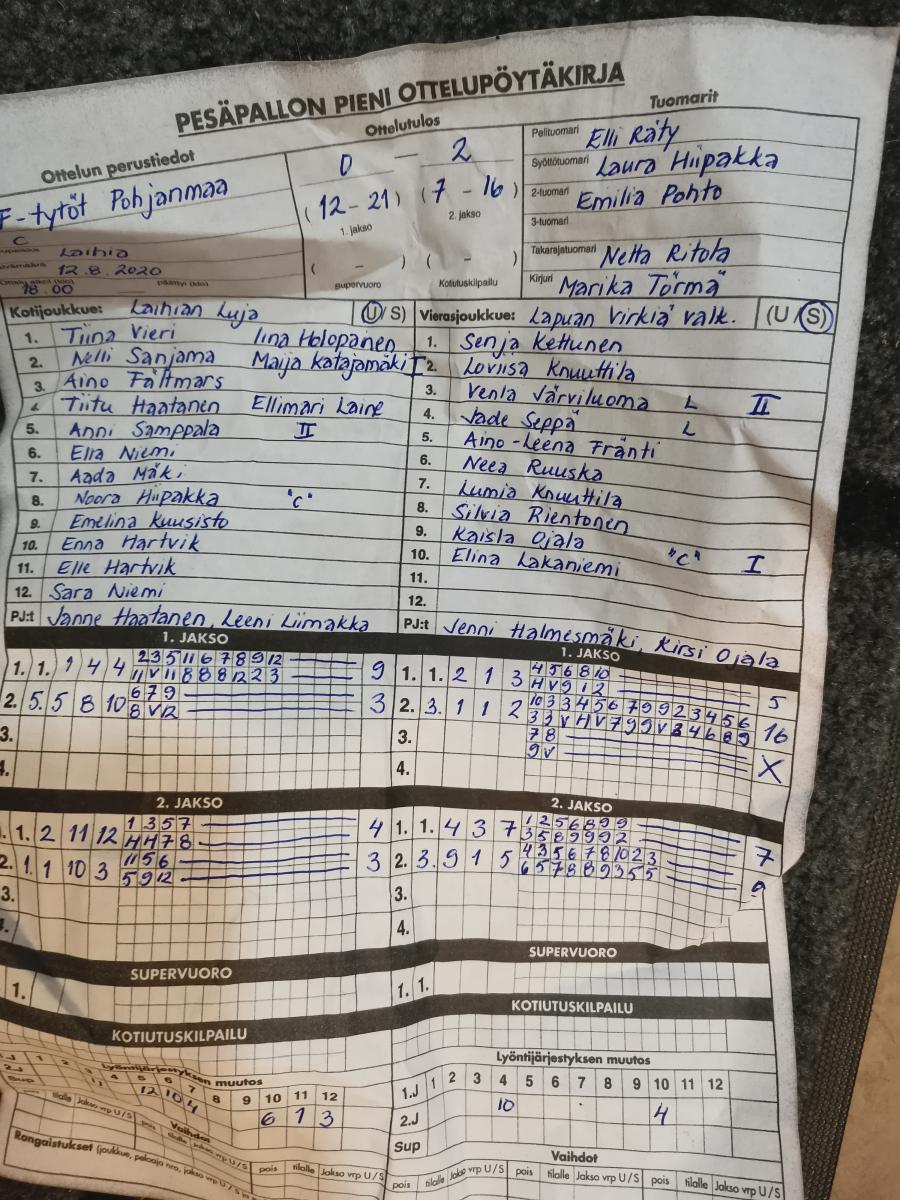 PESÄPALLON PIENI OTTELUPÖYTÄKIRJA
Ottelun perustiedot
Ottelutulos
Tuomarit
F-tytöt Pohjanmaa
0 - 2
(12 - 21) (7 - 16)
1. jakso 2. jakso
( - ) ( - )
supervuoro Kotiutuskilpailu
C
Laihia
12.8.2020
18.00
Pelituomari Elli Räty
Syöttötuomari Laura Hiipakka
2-tuomari Emilia Pohto
3-tuomari
Takarajatuomari Netta Ritola
Kirjuri Marika Törmä
Kotijoukkue: Laihian Luja (U/S)
1. Tiina Vieri Iina Holopainen
2. Nelli Sanjama Maija Katajamäki I
3. Aino Fältmars
4. Tiitu Haatanen Ellimari Laine
5. Anni Samppala II
6. Ella Niemi
7. Aada Mäki
8. Noora Hiipakka "C"
9. Emelina Kuusisto
10. Enna Hartvik
11. Elle Hartvik
12. Sara Niemi
PJ:t Janne Haatanen, Leeni Liimakka
Vierasjoukkue: Lapuan Virkiä valk. (U/S)
1. Senja Kettunen
2. Loviisa Knuuttila
3. Venla Järviluoma L II
4. Jade Seppä L
5. Aino-Leena Fränti
6. Neea Ruuska
7. Lumia Knuuttila
8. Silvia Rientonen
9. Kaisla Ojala
10. Elina Lakaniemi "C" I
11.
12.
PJ:t Jenni Halmesmäki, Kirsi Ojala
1. JAKSO
1. 1. 1 4 4 2 3 5 11 6 7 8 9 12 9
11 V 11 8 8 8 12 2 3
2. 5. 5 8 10 6 7 9 3
8 V 12
3.
4.
1. JAKSO
1. 1. 2 1 3 4 5 6 8 10 5
H V 9 1 2
2. 3. 1 1 2 10 3 3 4 5 6 7 9 9 2 3 4 5 6 16
3 3 V H V 7 9 9 V 3 4 6 8 9
3. 7 8 X
9 V
4.
2. JAKSO
1. 1. 2 11 12 1 3 5 7 4
H H 7 8
2. 1. 1 10 3 11 5 6 3
5 9 12
3.
2. JAKSO
1. 1. 4 3 7 1 2 5 6 8 9 9 7
3 5 8 9 9 9 2
2. 3. 9 1 5 4 3 5 6 7 8 10 2 3 9
6 5 7 8 8 9 3 5 5
3.
4.
SUPERVUORO
1.
SUPERVUORO
1. 1.
KOTIUTUSKILPAILU
KOTIUTUSKILPAILU
Lyöntijärjestyksen muutos
4 5 6 7 8 9 10 11 12
12 10 4 6 1 3
Sup
Vaihdot
tilalle Jakso vrp U/S pois tilalle Jakso vrp U/S pois tilalle Jakso vrp U/S
Rangaistukset (joukkue, pelaaja nro, jakso
Lyöntijärjestyksen muutos
1.J 1 2 3 4 5 6 7 8 9 10 11 12
2.J 10 4
Sup
Vaihdot
pois tilalle Jakso vrp U/S pois tilalle Jakso vrp U/S pois tilalle Jakso vrp U/S